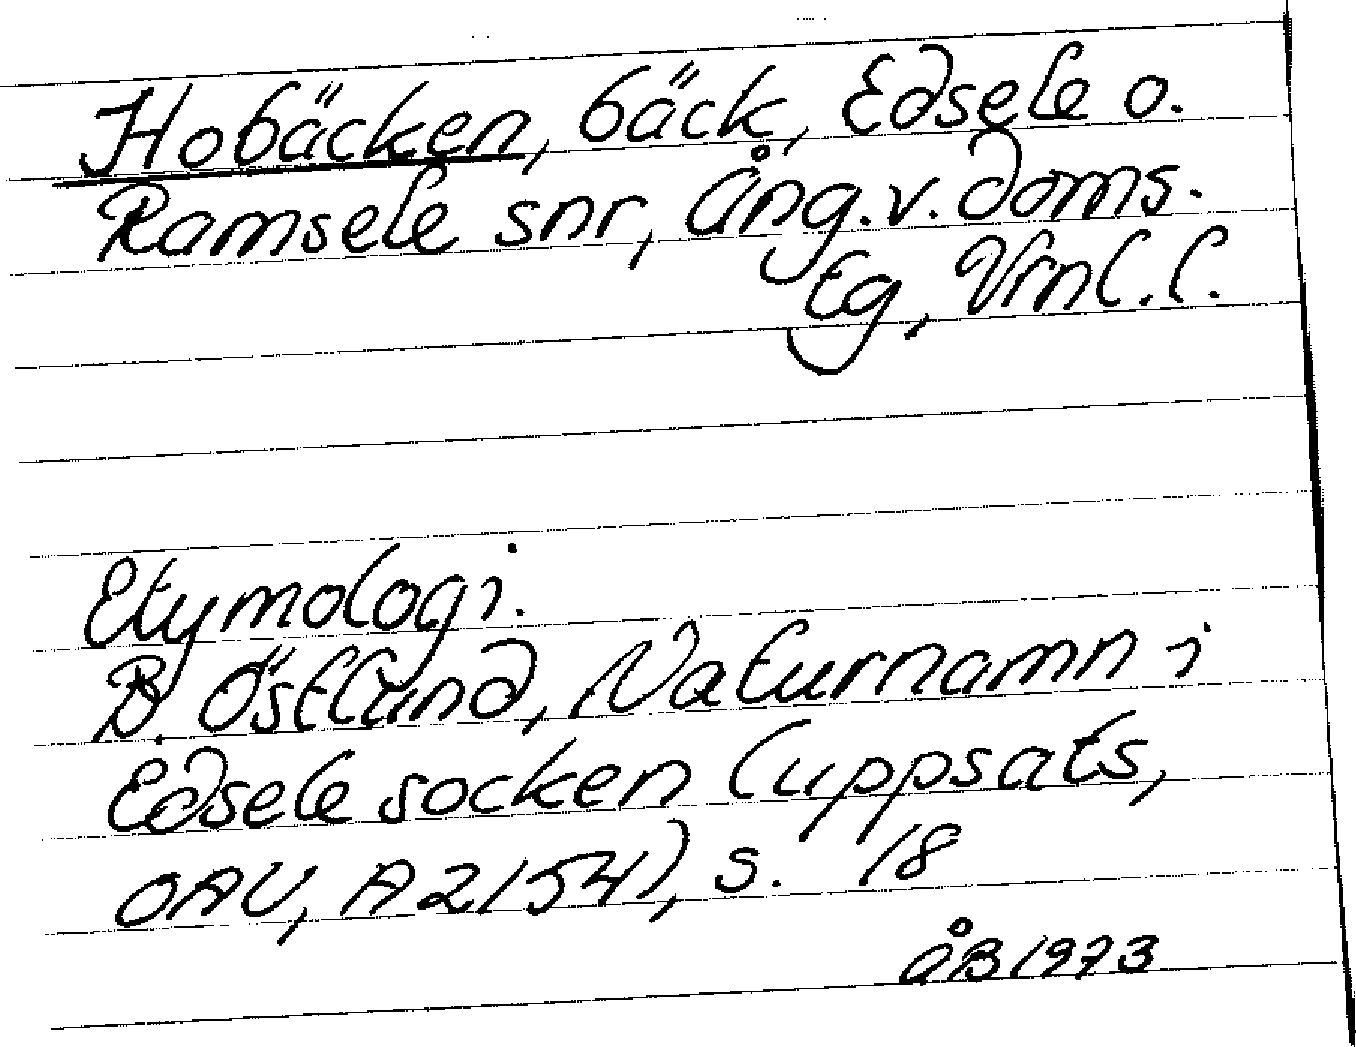 Hobäcken, bäck, Edsele o.
Ramsele snr, Ång.v.doms.
tg, Vrnl.l.
Etymologi.
B. Östlund, Naturnamn i
Edsele socken (uppsats,
OAU, A2154), s. 18
ÅB 1973